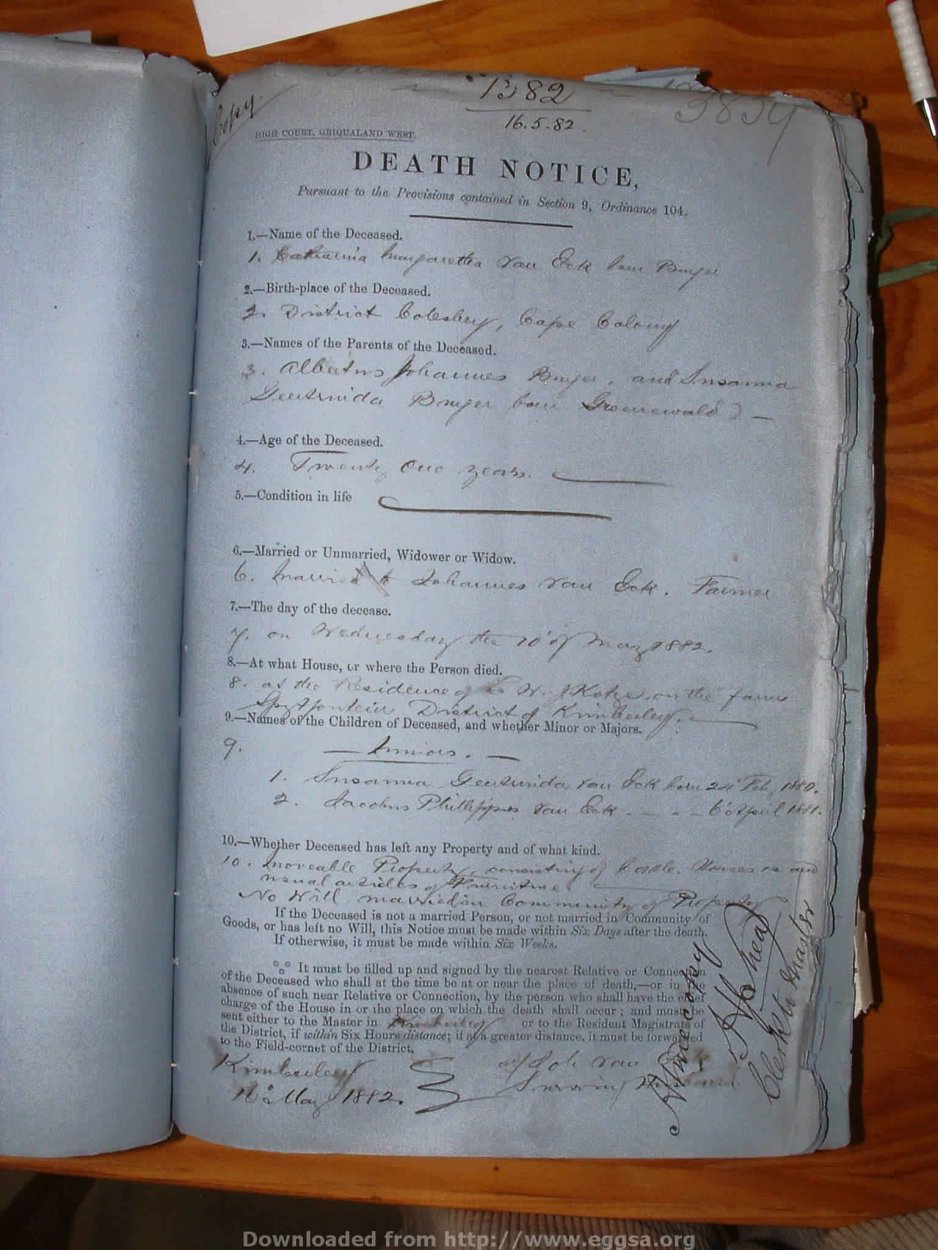 Copy.
1382
3839
16.5.82
HIGH COURT, GRIQUALAND WEST.
DEATH NOTICE,
Pursuant to the Provisions contained in Section 9, Ordinance 104.
1.—Name of the Deceased.
1. Catharina Margaretha van Eck born
2.—Birth-place of the Deceased.
2. District Colesberg, Cape Colony
3.—Names of the Parents of the Deceased.
3. Albertus Johannes and Susanna
Geertruida born Groenewald
4.—Age of the Deceased.
4. Twenty One years.
5.—Condition in life
6.—Married or Unmarried, Widower or Widow.
6. Married to Johannes van Eck. Farmer
7.—The day of the decease.
7. on Wednesday the 10th of May 1882.
8.—At what House, or where the Person died.
8. at the Residence of W. J Kotze, on the farm
District of Kimberley.
9.—Names of the Children of Deceased, and whether Minor or Majors.
9. — Minors. —
1. Susanna Geertruida van Eck born 24th Feb. 1880.
2. Jacobus Phillippes van Eck - - - 6th April 1881.
10.—Whether Deceased has left any Property and of what kind.
10. Moveable Property, consisting of Cattle, Horses and
usual articles of Furniture
No Will married in Community of Property
If the Deceased is not a married Person, or not married in Community of
Goods, or has left no Will, this Notice must be made within Six Days after the death.
If otherwise, it must be made within Six Weeks.
It must be filled up and signed by the nearest Relative or Connection
of the Deceased who shall at the time be at or near the place of death,—or in the
absence of such near Relative or Connection, by the person who shall have the chief
charge of the House in or the place on which the death shall occur; and must be
sent either to the Master in Kimberley or to the Resident Magistrate of
the District, if within Six Hours distance; if at a greater distance, it must be forwarded
to the Field-cornet of the District.
Kimberley
16th May 1882.
van
Surviving Husband
A true copy
Clerk to Master
Downloaded from http://www.eggsa.org